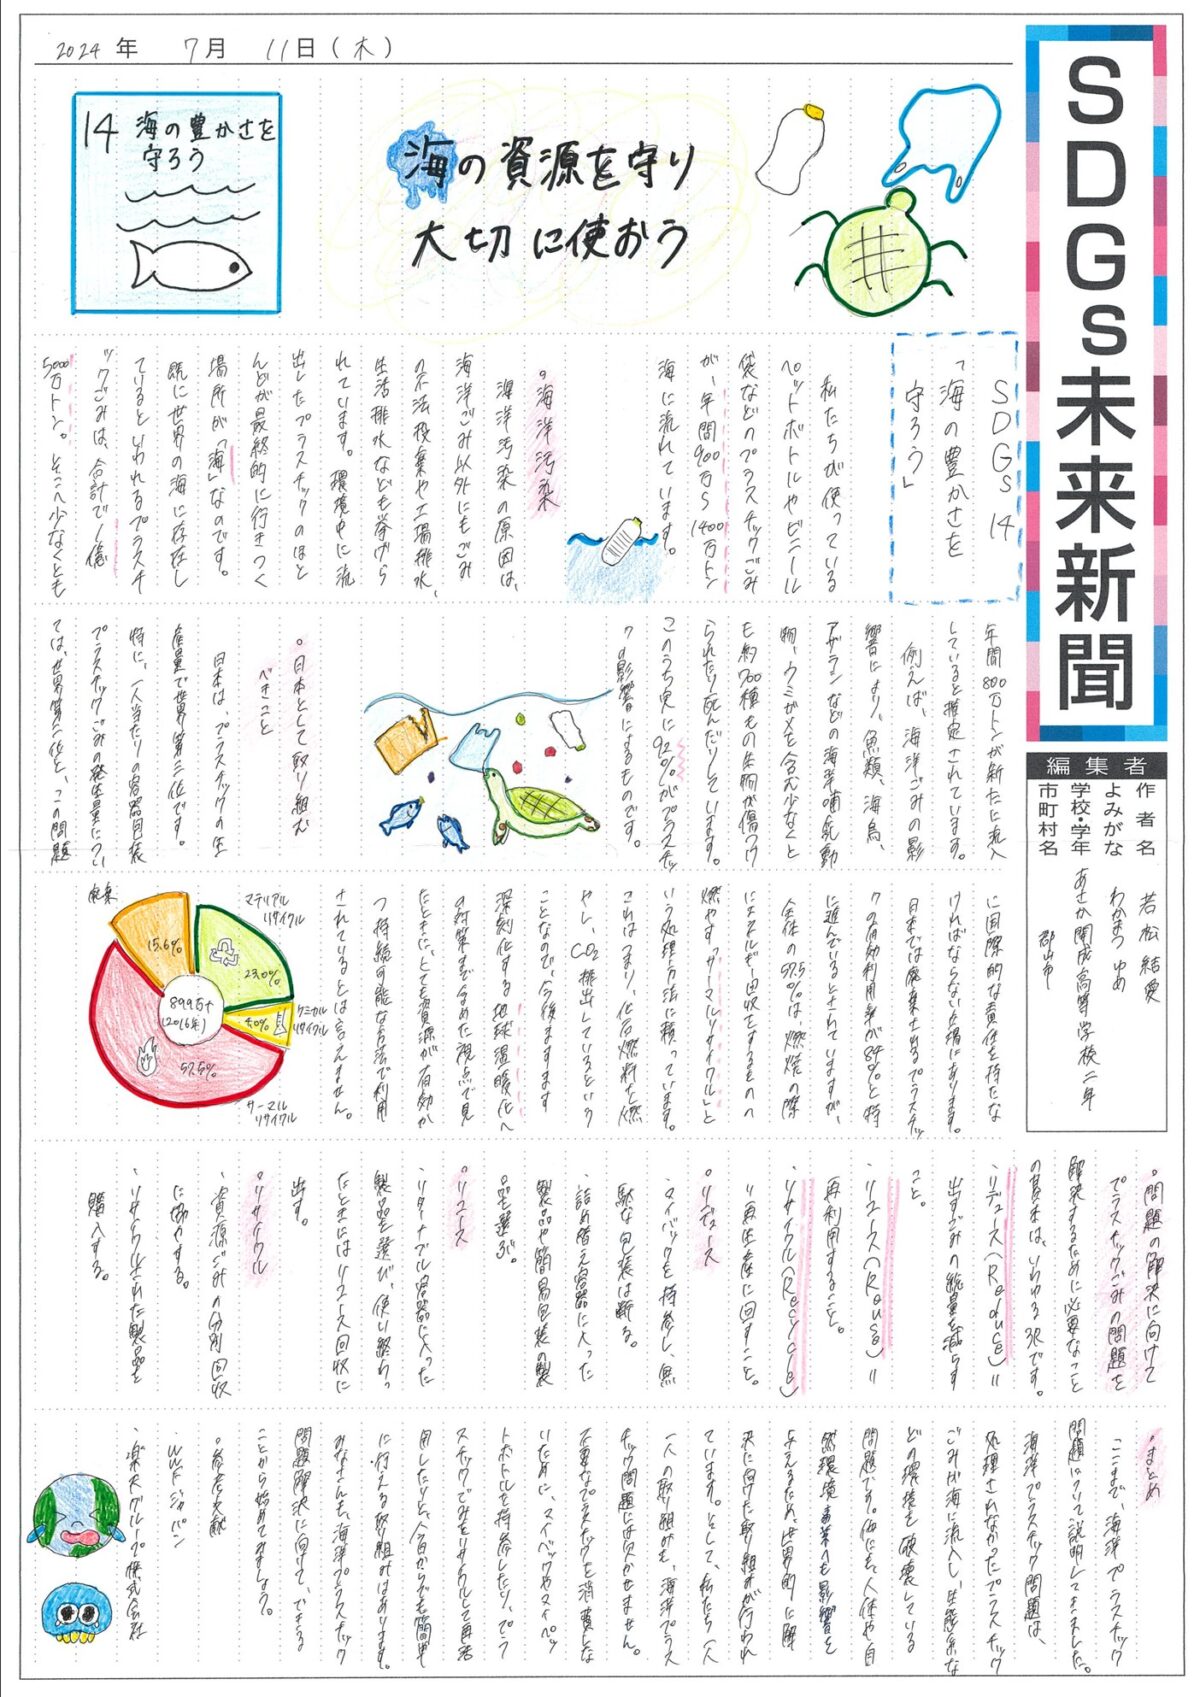 2024年 7月 11日(木)
SDGs未来新聞
編集者
作者名 若松 結愛
よみがな わかまつ ゆめ
学校・学年 あさか開成高等学校二年
市町村名 郡山市
14 海の豊かさを
守ろう
海の資源を守り
大切に使おう
SDGs 14
「海の豊かさを
守ろう」
私たちが使っている
ペットボトルやビニール
袋などのプラスチックごみ
が、一年間900万〜1400万トン
海に流れています。
。海洋汚染
海洋汚染の原因は、
海洋ごみ以外にもごみ
の不法投棄や工場排水、
生活排水なども挙げら
れています。環境中に流
出したプラスチックのほと
んどが最終的に行きつく
場所が「海」なのです。
既に世界の海に存在し
ているといわれるプラスチ
ックごみは、合計で1億
5000万トン。そこへ少なくとも
年間800万トンが新たに流入
していると推定されています。
例えば、海洋ごみの影
響により、魚類、海鳥、
アザラシなどの海洋哺乳動
物、ウミガメを含む少なくと
も約700種もの生物が傷つけ
られたり死んだりしています。
このうち実に92%がプラスチッ
クの影響によるものです。
。日本として取り組む
べきこと
日本は、プラスチックの生
産量で世界第三位です。
特に、一人当たりの容器包装
プラスチックごみの発生量につい
ては、世界第二位と、この問題
に国際的な責任を持たな
ければならない立場にあります。
日本では廃棄されるプラスチッ
クの有効利用率が84%と特
に進んでいるとされていますが、
全体の57.5%は、燃焼の際
にエネルギー回収をするものの
燃やす「サーマルリサイクル」と
いう処理方法に頼っています。
これはつまり、化石燃料を燃
やし、CO2排出しているという
ことなので、今後ますます
深刻化する地球温暖化へ
の対策まで含めた視点で見
たときに、とても資源が有効か
つ持続可能な方法で利用
されているとは言えません。
廃棄
15.6%
マテリアル
リサイクル
23.0%
ケミカル
リサイクル
4.0%
899万t
(2016年)
57.5%
サーマル
リサイクル
。問題の解決に向けて
プラスチックごみの問題を
解決するために必要なこと
の基本は、いわゆる3Rです。
・リデュース(Reduce)=
出すごみの総量を減らす
こと。
・リユース(Reuse)=
再利用すること。
・リサイクル(Recycle)
=再生産に回すこと。
・リデュース
・マイバッグを持参し、無
駄な包装は断る。
・詰め替え容器に入った
製品や簡易包装の製
品を選ぶ。
・リユース
・リターナブル容器に入った
製品を選び、使い終わっ
たときにはリユース回収に
出す。
・リサイクル
・資源ごみの分別回収
に協力する。
・リサイクルされた製品を
購入する。
。まとめ
ここまで、海洋プラスチック
問題について説明してきました。
海洋プラスチック問題は、
処理されなかったプラスチック
ごみが海に流入し、生態系な
どの環境を破壊している
問題です。他にも、人体や自
然環境、産業へも影響を
与えるため、世界的に解
決に向けた取り組みが行われ
ています。そして、私たち一人
一人の取り組みも、海洋プラス
チック問題には欠かせません。
不要なプラスチックを消費しな
いために、マイバックやマイペッ
トボトルを持参したり、プラ
スチックごみをリサイクルして再活
用したりと、今日からでも簡単
に行える取り組みはあります。
みなさんも、海洋プラスチック
問題解決に向けて、できる
ことから始めてみましょう。
。参考文献
・WWFジャパン
・楽天グループ株式会社